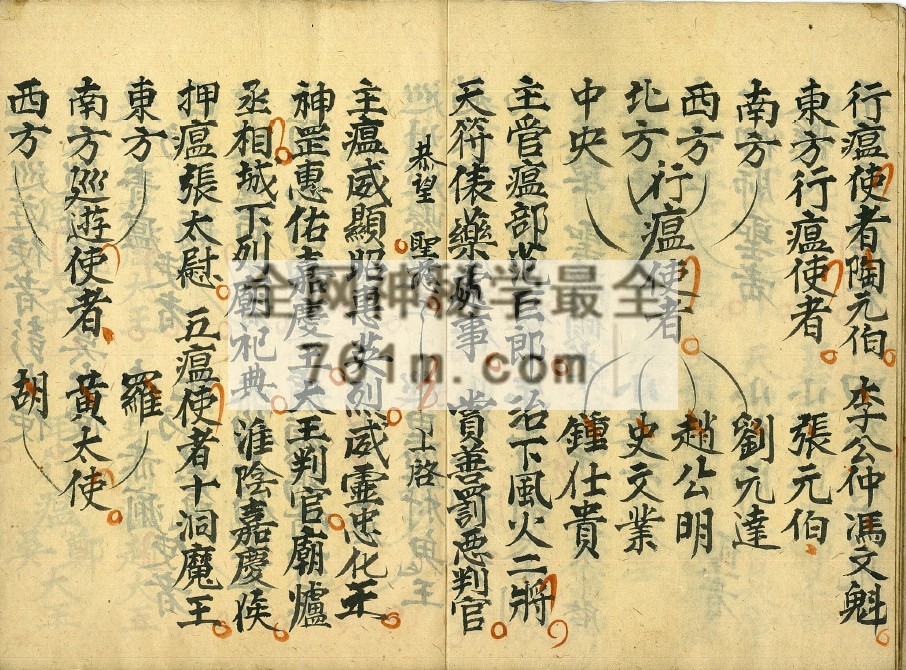 行瘟使者陶元伯 李公仲馮文魁
東方行瘟使者 張元伯
南方 劉元達
西方 趙公明
北方 行瘟使者 史文業
中央 鍾仕貴
主管瘟部 治下風火二將
天符俵藥 事 賞善罰惡判官
恭望 聖 上啓
主瘟威顯昭惠英烈 威靈忠化王
神罡惠佑嘉慶王 大王判官廟爐
丞相城下列廟祀典 淮陰嘉慶侯
押瘟張太慰 五瘟使者十洞魔王
東方 羅
南方巡遊使者 黃太使
西方 胡
全网神秘学最全
761m.com